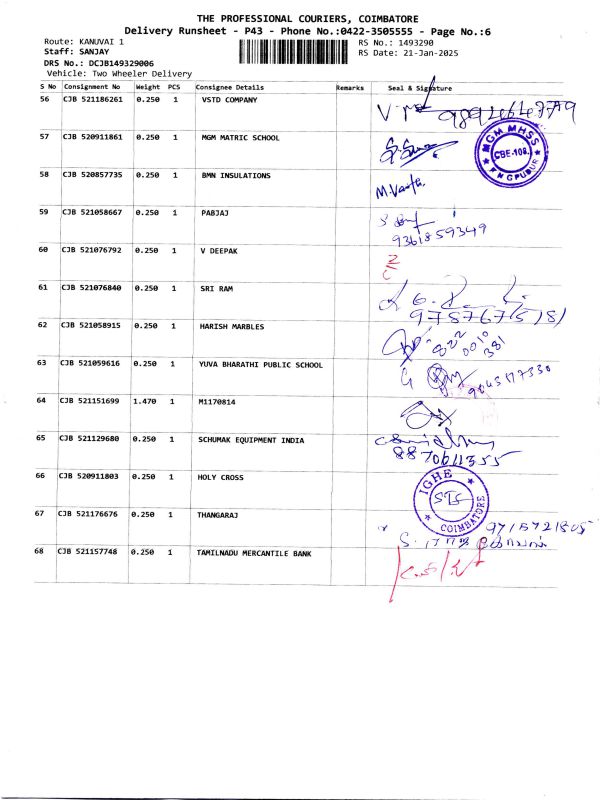 THE PROFESSIONAL COURIERS, COIMBATORE
Delivery Runsheet - P43 - Phone No.:0422-3505555 - Page No.:6
Route: KANUVAI 1
RS No.: 1493290
Staff: SANJAY
RS Date: 21-Jan-2025
DRS No.: DCJB149329006
Vehicle: Two Wheeler Delivery
S No Consignment No Weight PCS Consignee Details Remarks Seal & Signature
56 CJB 521186261 0.250 1 VSTD COMPANY
57 CJB 520911861 0.250 1 MGM MATRIC SCHOOL
MGM MHSS CBE-109.
58 CJB 520857735 0.250 1 BMN INSULATIONS
59 CJB 521058667 0.250 1 PABJAJ
9361859349
60 CJB 521076792 0.250 1 V DEEPAK
61 CJB 521076840 0.250 1 SRI RAM
62 CJB 521058915 0.250 1 HARISH MARBLES
63 CJB 521059616 0.250 1 YUVA BHARATHI PUBLIC SCHOOL
64 CJB 521151699 1.470 1 M1170814
65 CJB 521129680 0.250 1 SCHUMAK EQUIPMENT INDIA
8870611355
66 CJB 520911803 0.250 1 HOLY CROSS
IGHE COIMBATORE
67 CJB 521176676 0.250 1 THANGARAJ
68 CJB 521157748 0.250 1 TAMILNADU MERCANTILE BANK